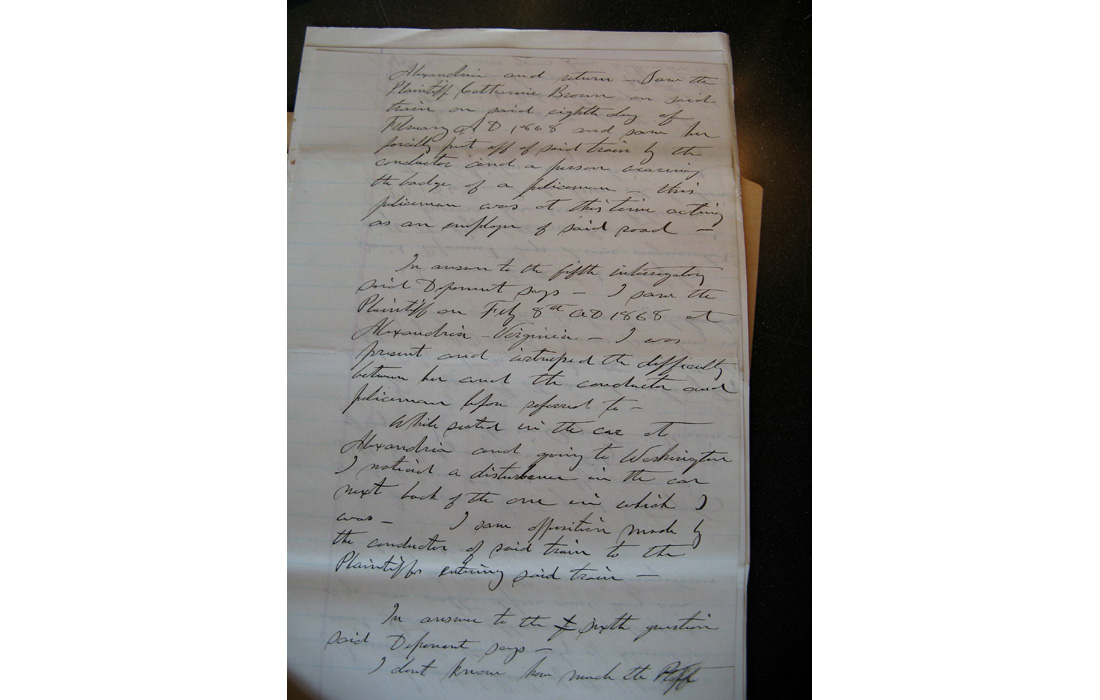 Alexandria and return – Saw the
Plaintiff Catharine Brown on said
train on said eighth day of
February A D 1868 and saw her
forcibly put off of said train by the
conductor and a person wearing
the badge of a policeman – this
policeman was at this time acting
as an employee of said road –
In answer to the fifth interrogatory
said Deponent says – I saw the
Plaintiff on Feby 8th AD 1868 at
Alexandria Virginia – I was
present and witnessed the difficulty
between her and the conductor and
policeman before referred to –
While seated in the car at
Alexandria and going to Washington
I noticed a disturbance in the car
next back of the one in which I
was – I saw opposition made by
the conductor of said train to the
Plaintiffs entering said train –
In answer to the sixth question
said Deponent says –
I dont know how much the Plff